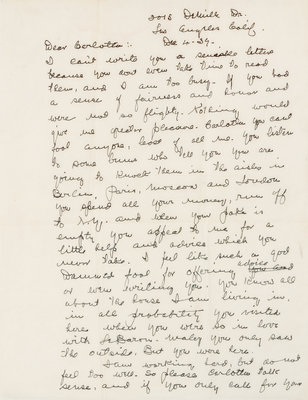 2015 DeMille Dr.
Los Angeles Calif.
Dec 4-39.
Dear Carlotta:.
I can't write you a sensible letter
because you dont even take time to read
them, and I am too busy. If you had
a sense of fairness and honor and
were not so flighty. Nothing would
give me greater pleasure. Carlotta you can't
fool anyone, least of all me. You listen
to some bums who tell you you are
going to knock them in the aisles in
Berlin, Paris, Moscow and London
you spend all your money, run off
to N.Y. and when your poke is
empty you appeal to me for a
little help and advice which you
never take. I feel like such a good
damned fool for offering advice
or even writing you. You know all
about the house I am living in,
in all probability you visited
here when you were so in love
with LeBaron. Maby you only saw
the outside, But you were here.
I am working hard, but do not
feel too well. So please Carlotta talk
sense, and if you only call for you